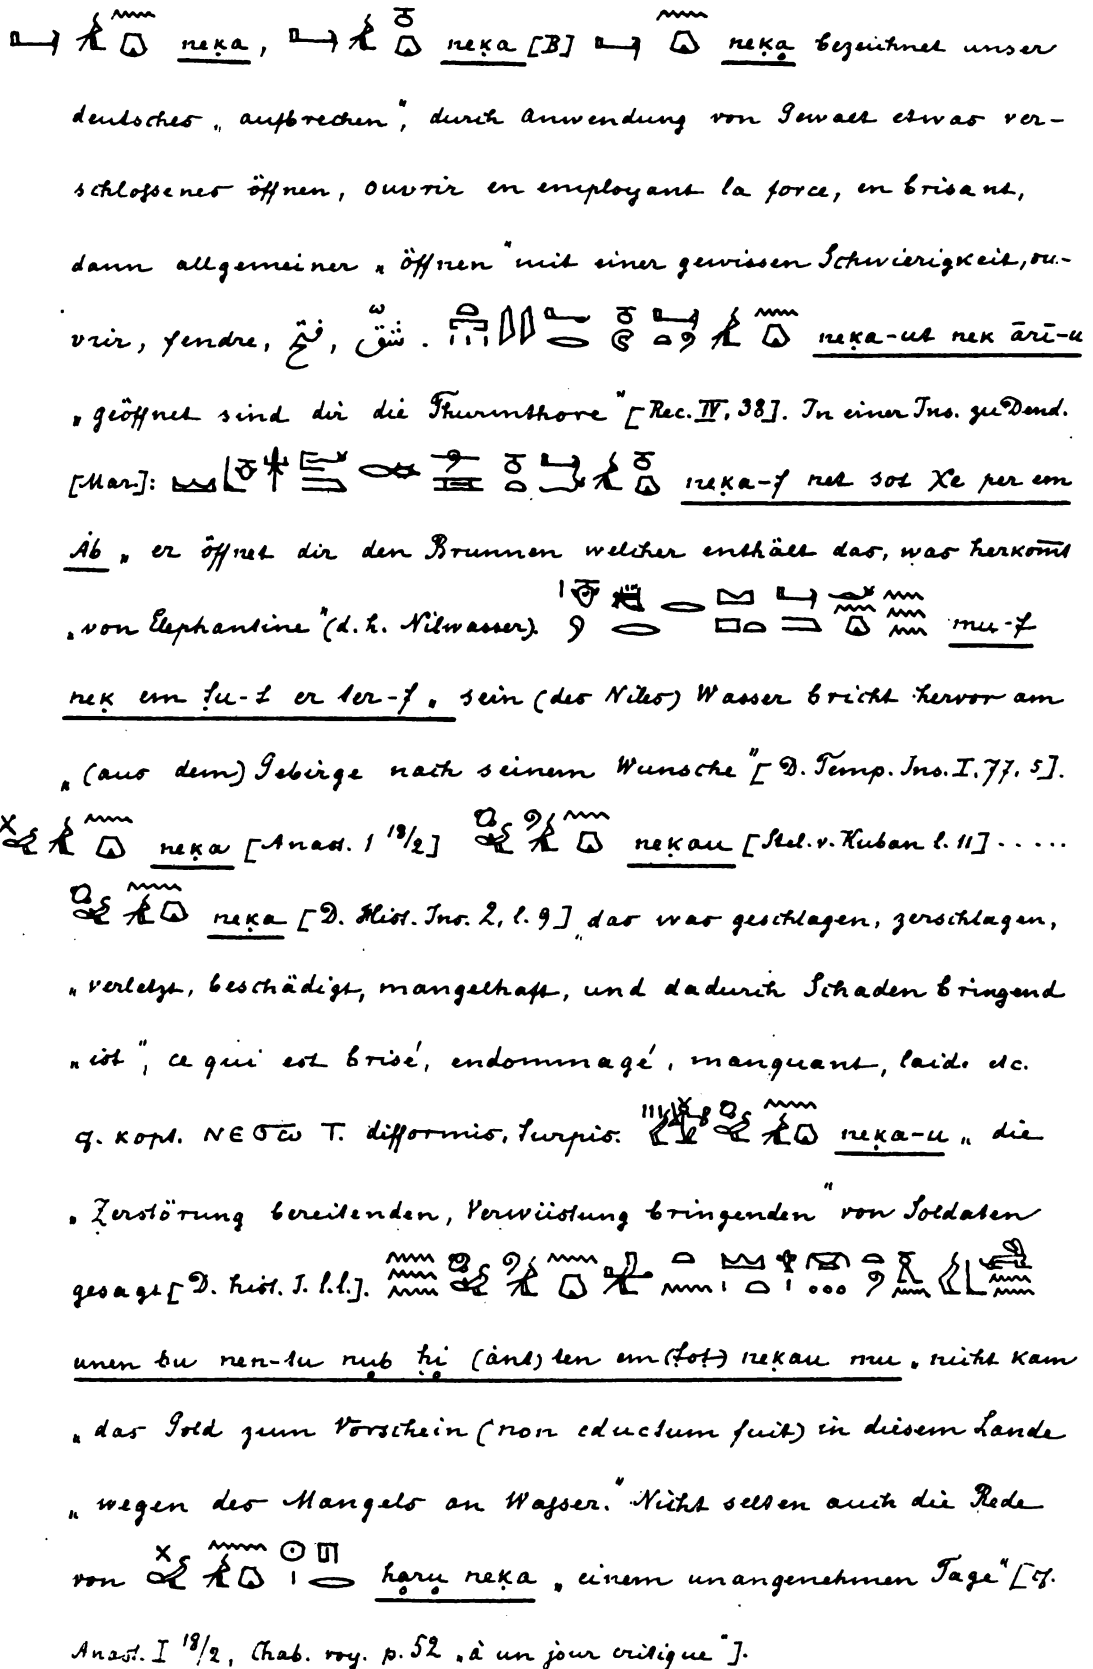 neḳa, neḳa [B] neḳa bezeichnet unser
deutsches „aufbrechen“, durch Anwendung von Gewalt etwas ver-
schlossenes öffnen, ouvrir en employant la force, en brisant,
dann allgemeiner „öffnen“ mit einer gewissen Schwierigkeit, ou-
vrir, fendre, فتح, شقّ. neḳa-ut nek ārī-u
„geöffnet sind dir die Thurmthore“ [Rec. IV, 38]. In einer Ins. zu Dend.
[Mar.]: neḳa-f net sot χe per em
Ȧb „er öffnet dir den Brunnen welcher enthält das, was herkom̄t
„von Elephantine“ (d. h. Nilwasser). mu-f
neḳ em ṭu-t er ter-f „sein (des Niles) Wasser bricht hervor am
„(aus dem) Gebirge nach seinem Wunsche“ [D. Temp. Ins. I, 77, 5].
neḳa [Anast. I 18/2] neḳau [Stel. v. Kuban l. 11] .....
neḳa [D. Hist. Ins. 2, l. 9] „das was geschlagen, zerschlagen,
„verletzt, beschädigt, mangelhaft, und dadurch Schaden bringend
„ist“, ce qui est brisé, endommagé, manquant, laid. etc.
cf. kopt. ⲛⲉϭⲱ T. difformis, turpis. neḳa-u „die
„Zerstörung bereitenden, Verwüstung bringenden“ von Soldaten
gesagt [D. hist. I. l.l.].
unen bu nen-tu nub ḥi (ȧnt) ten em (ṭot) neḳau mu „nicht kam
„das Gold zum Vorschein (non eductum fuit) in diesem Lande
„wegen des Mangels an Wasser.“ Nicht selten auch die Rede
von haru neḳa „einem unangenehmen Tage“ [cf.
Anast. I 18/2, Chab. voy. p. 52 „à un jour critique“].